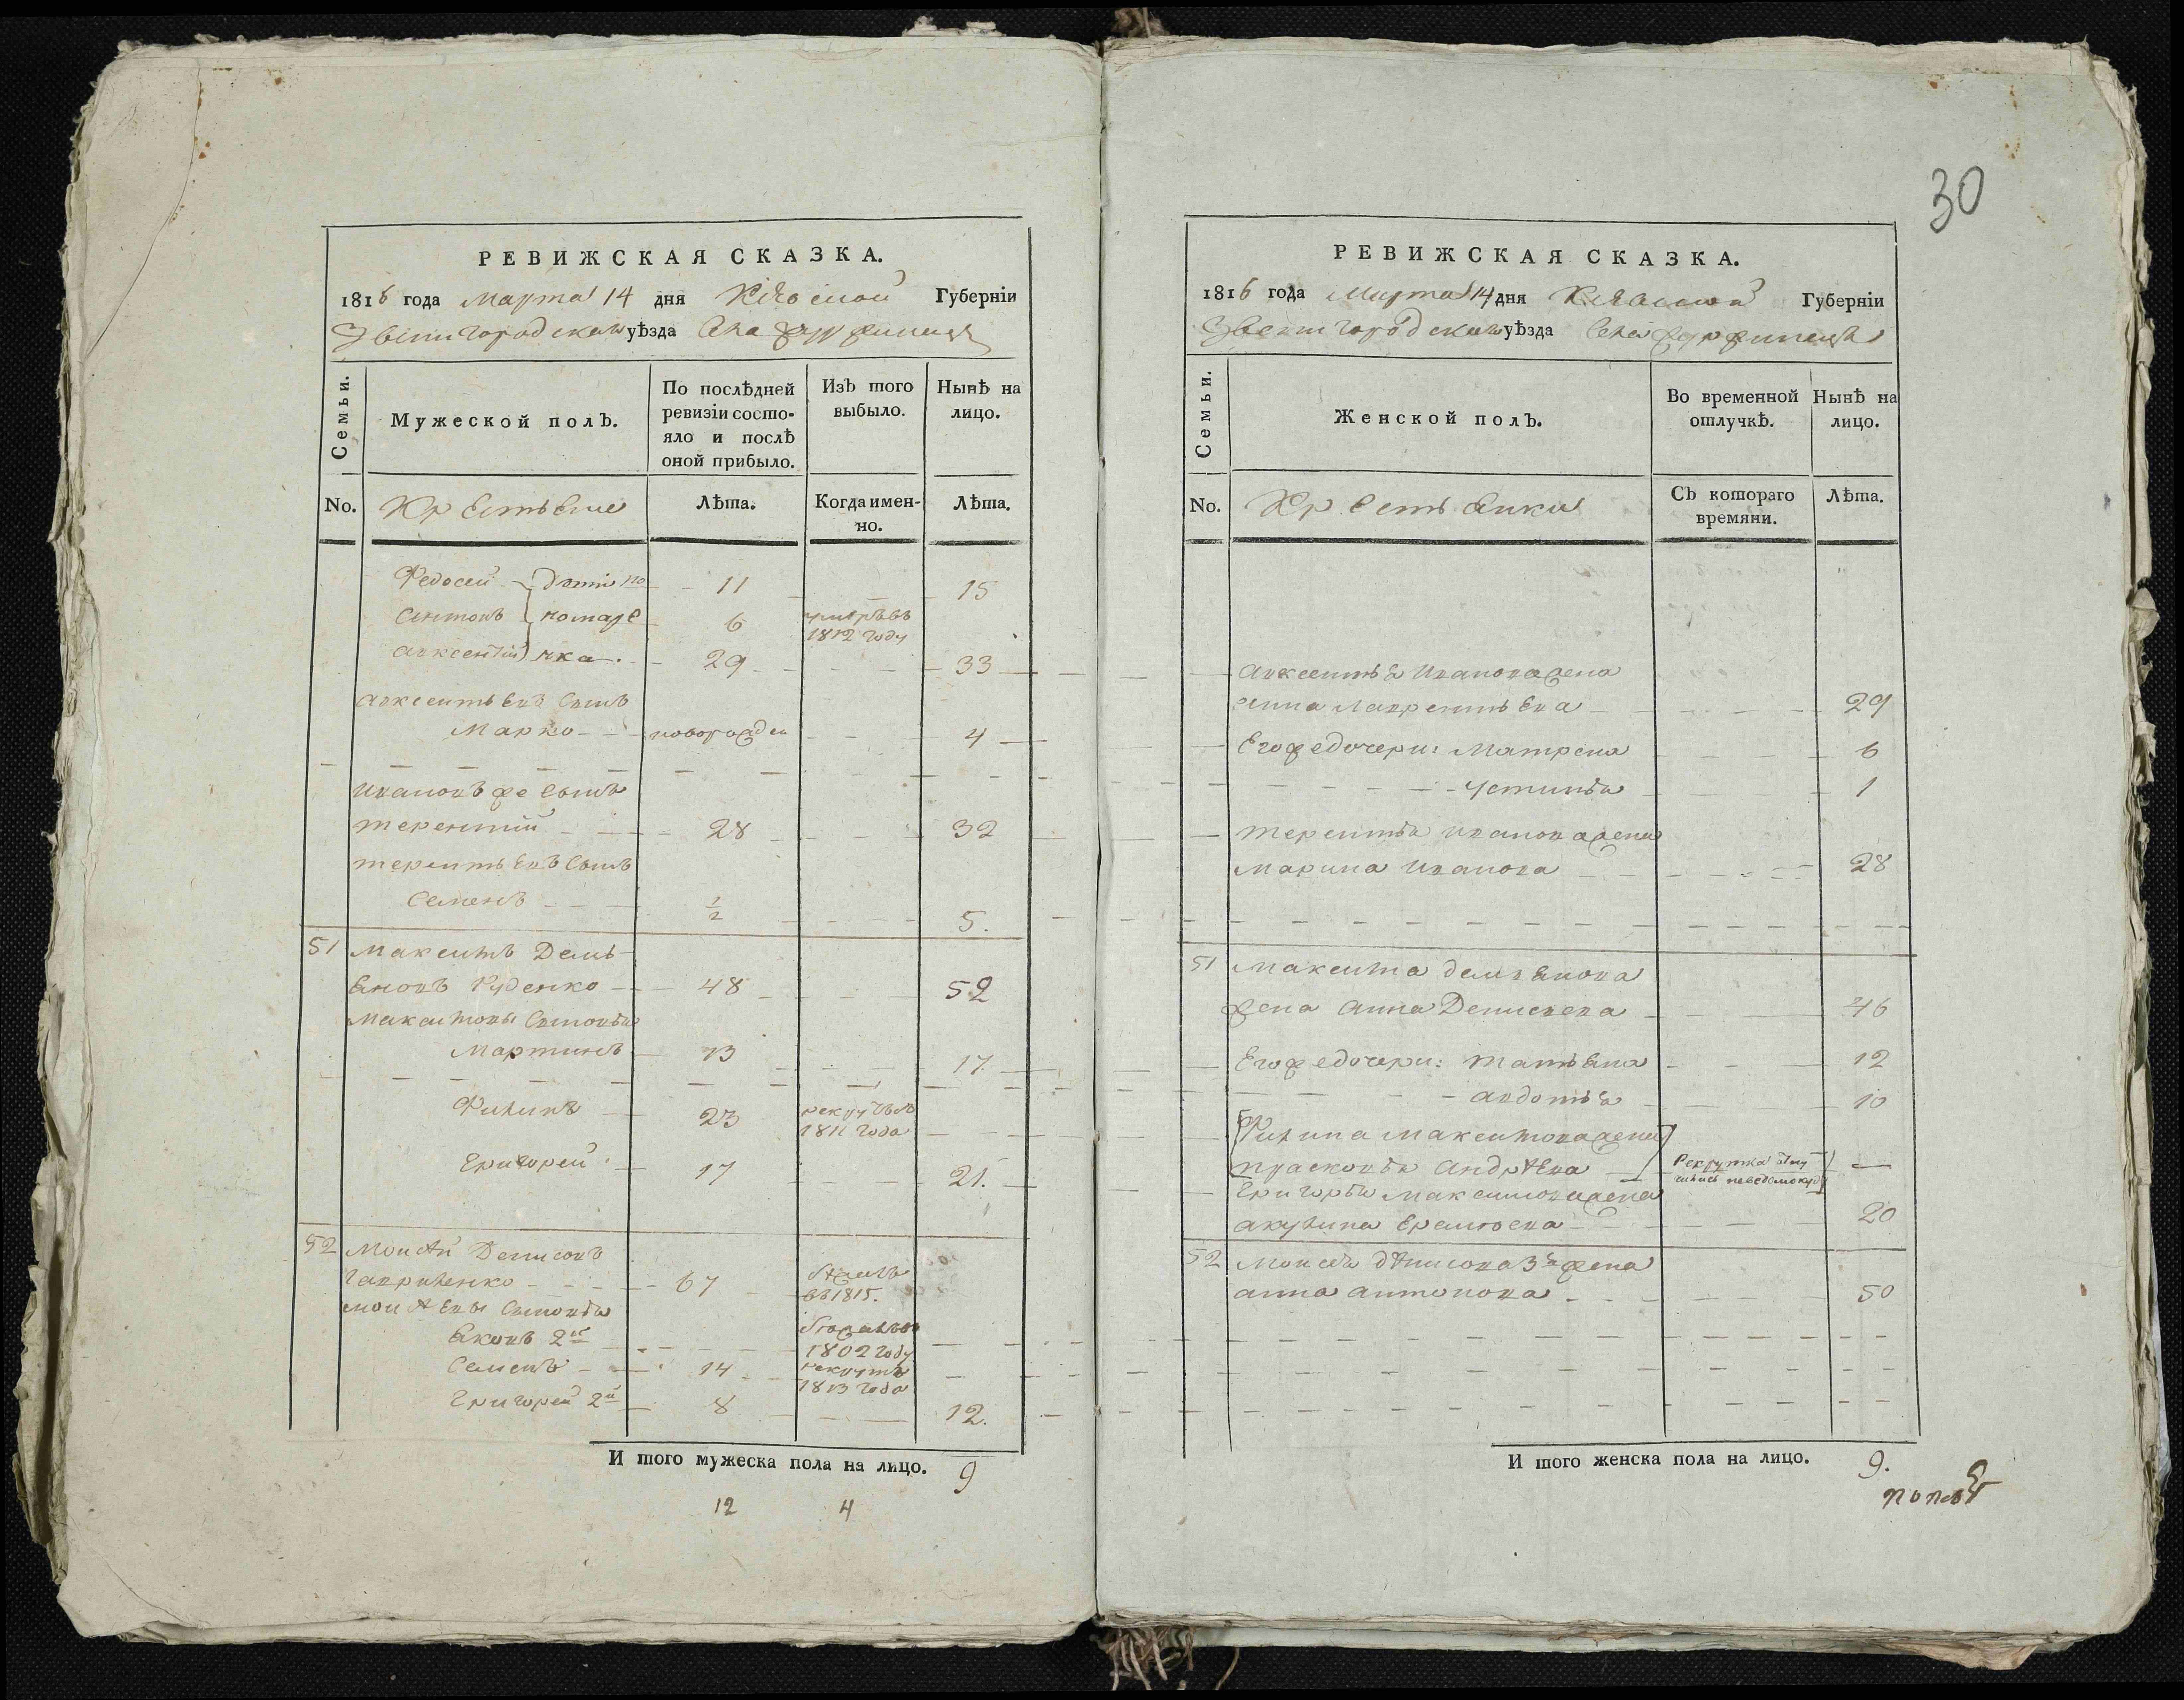 РЕВИЖСКАЯ СКАЗКА.
1816 года Марта 14 дня Кіевской Губерніи
Звенигородскаго уѣзда Села
Семьи.
Мужеской полъ.
По послѣдней
ревизіи состо-
яло и послѣ
оной прибыло.
Изъ того
выбыло.
Нынѣ на
лицо.
No.
Крестьяне
Лѣта.
Когда имен-
но.
Лѣта.
Федосей дѣти 11 15
Антонъ 6 умре въ
1812 году
Авксентій 29 33
Авксентьевъ сынъ
Марко новорожден 4
Ивановъ же сынъ
терентій 28 32
терентьевъ сынъ
Семенъ ½ 5.
51 Максимъ Демь-
яновъ Руденко 48 52
Максимовы сыновья
Мартинъ 13 17.
Филипъ 23 рекрут въ
1811 года
Григорей 17 21.
52 Моисѣй Денисовъ
Гавриленко 67
въ 1815.
Моисѣевы сыновья
Яковъ 2й
1802 году
Семенъ 14 рекрутъ
1813 года
Григорей 2й 8 12.
И того мужеска пола на лицо. 9
12 4
30
РЕВИЖСКАЯ СКАЗКА.
1816 года Марта 14 дня Кіевской Губерніи
Звенигородскаго уѣзда Села
Семьи.
Женской полъ.
Во временной
отлучкѣ.
Нынѣ на
лицо.
No.
Крестьянки
Съ котораго
времяни.
Лѣта.
Авксентья Иванова жена
анна Лаврентьева 29
Его же дочери: Матрена 6
Устинья 1
терентья Иванова жена
Марина Иванова 28
51 Максима демьянова
жена Анна Денисьева 46
Его же дочери: татьяна 12
авдотья 10
Филипа Максимова жена
прасковья Андрѣева Рекрутка
неведомо куда
Григорья Максимова жена
акулина 20
52 Моисея дѣнисова 3я жена
анна антонова 50
И того женска пола на лицо. 9.